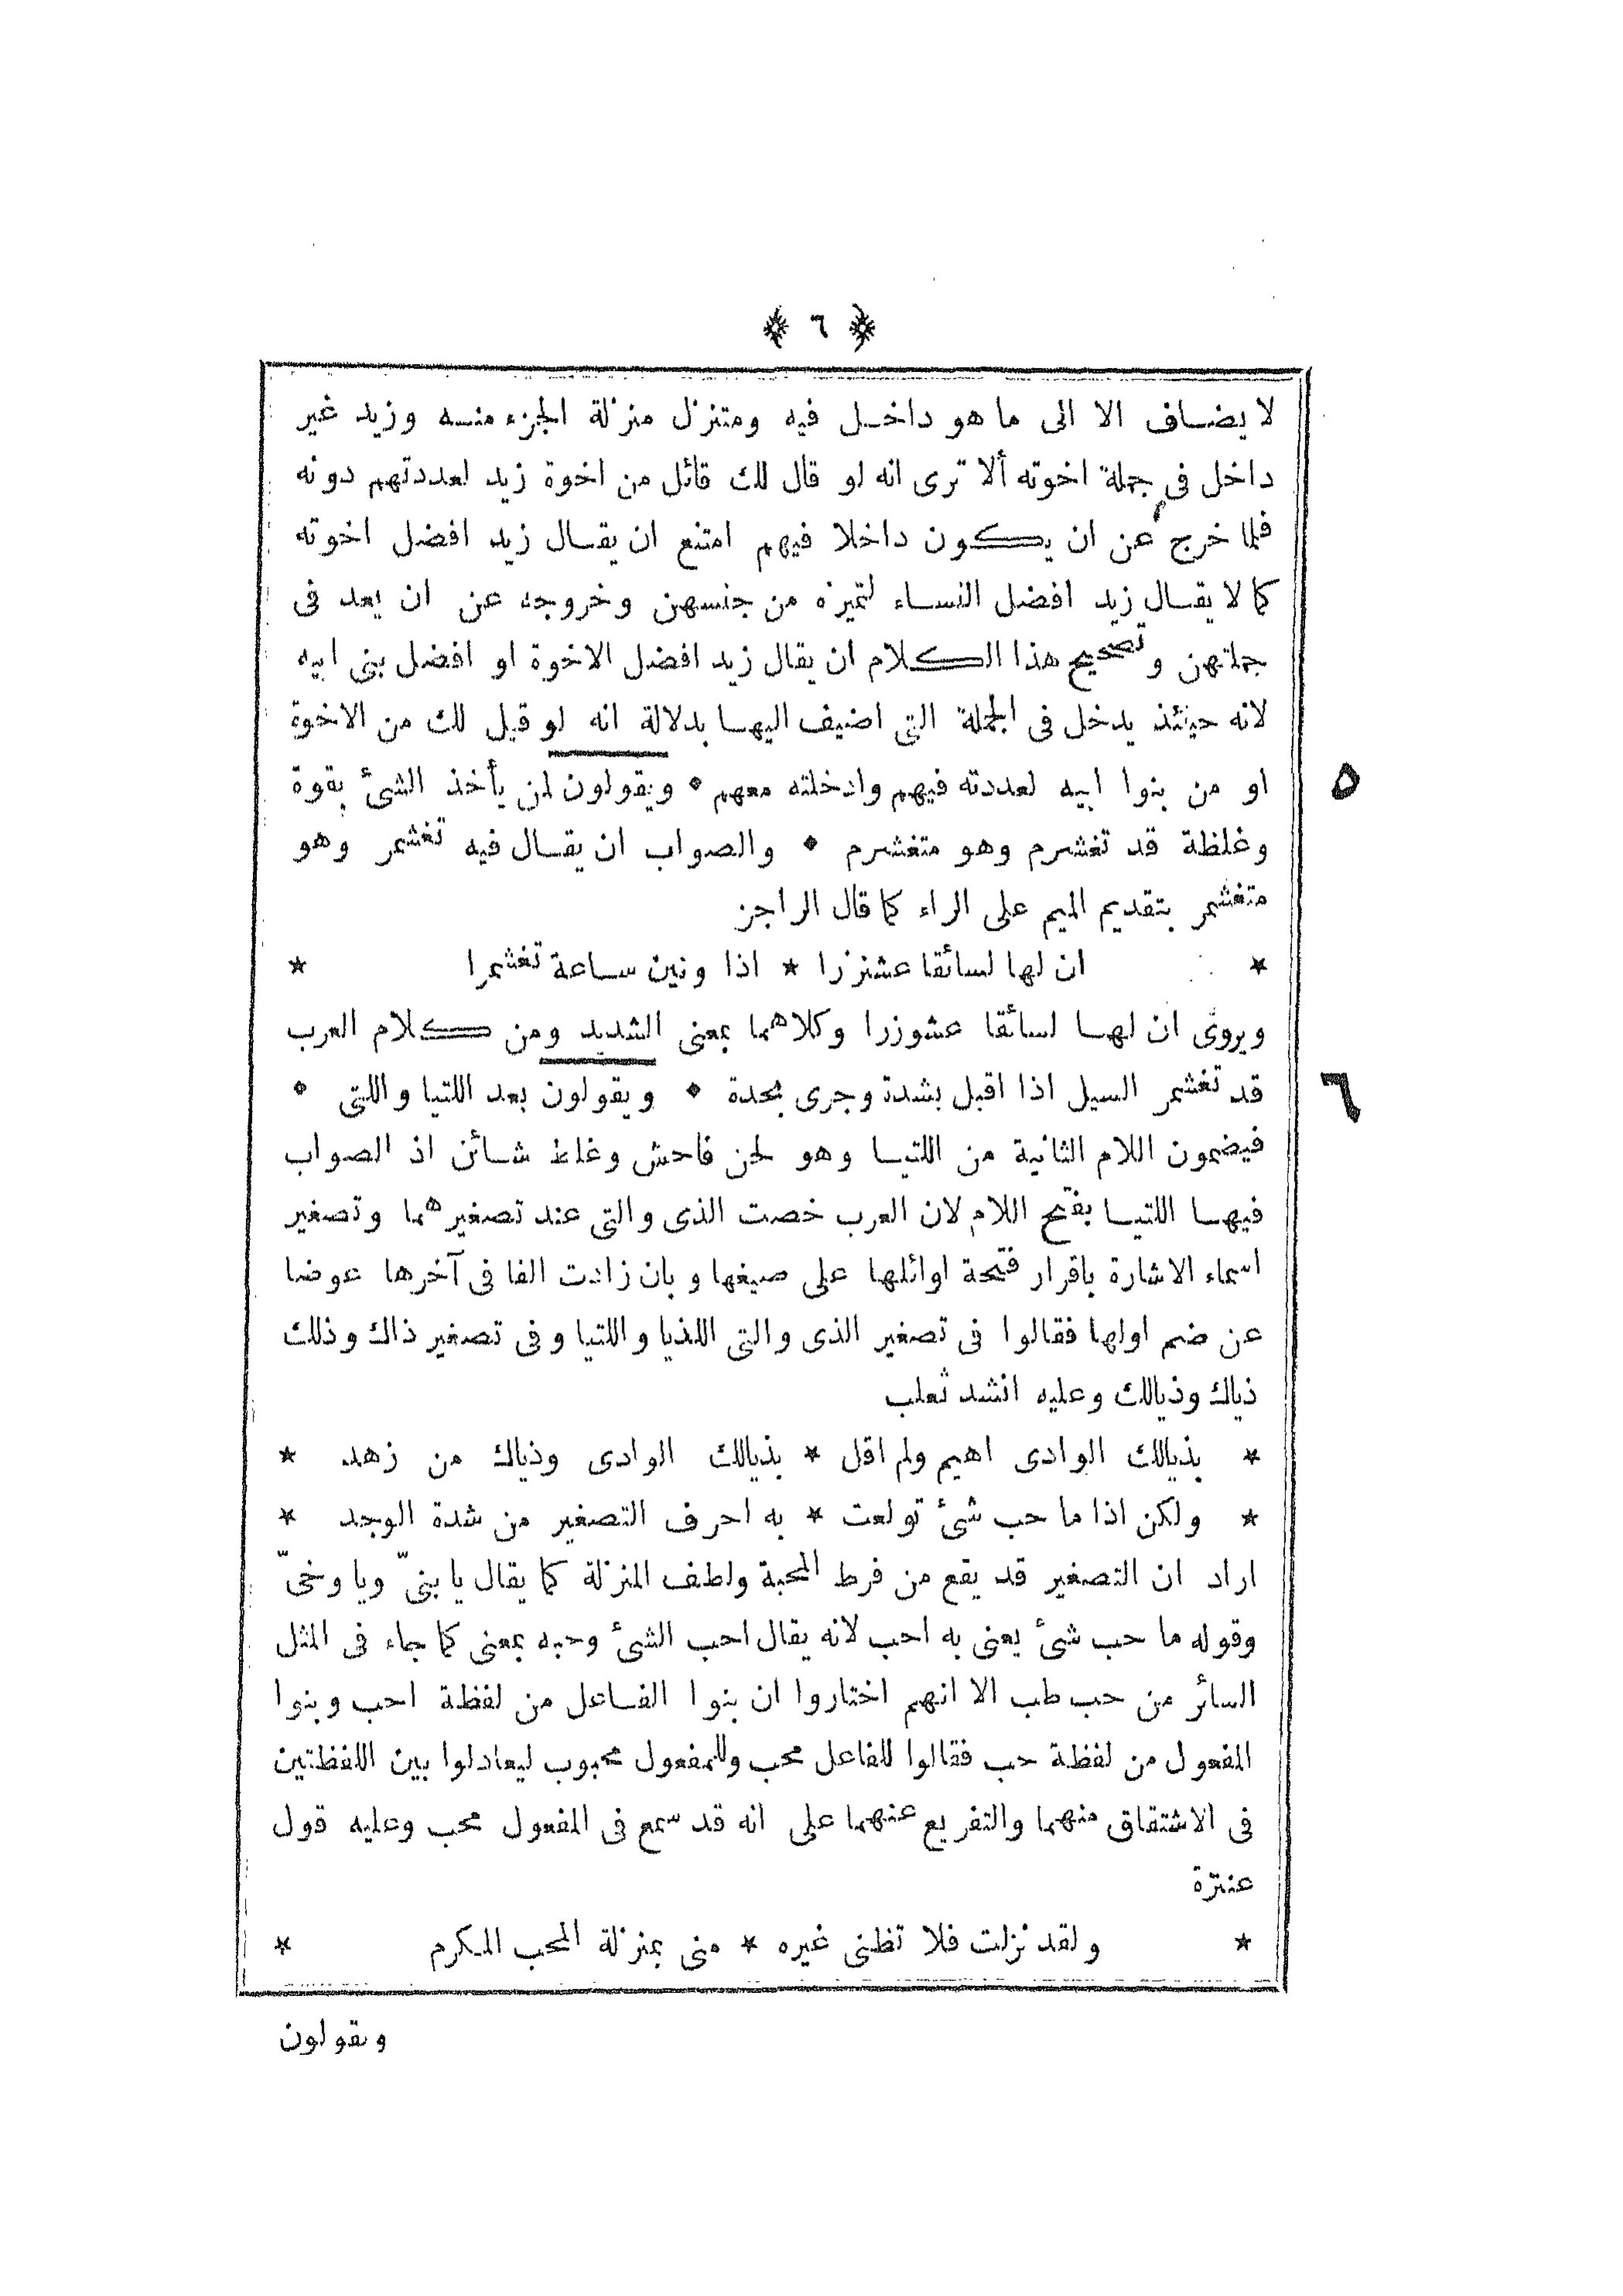 ﴿ ٦ ﴾
لا يضاف الا الى ما هو داخل فيه ومتنزل منزلة الجزء منه وزيد غير
داخل فى جملة اخوته ألا ترى انه لو قال لك قائل من اخوة زيد لعددتهم دونه
فلما خرج عن ان يكون داخلا فيهم امتنع ان يقال زيد افضل اخوته
كما لا يقال زيد افضل النساء لتميزه من جنسهن وخروجه عن ان يعد فى
جملتهن وتصحيح هذا الكلام ان يقال زيد افضل الاخوة او افضل بنى ابيه
لانه حينئذ يدخل فى الجملة التى اضيف اليها بدلالة انه لو قيل لك من الاخوة
او من بنوا ابيه لعددته فيهم وادخلته معهم * ويقولون لمن يأخذ الشئ بقوة ٥
وغلظة قد تغشرم وهو متغشرم * والصواب ان يقال فيه تغشمر وهو
متغشمر بتقديم الميم على الراء كما قال الراجز
* ان لها لسائقا عشنزرا * اذا ونين ساعة تغشمرا *
ويروى ان لها لسائقا عشوزرا وكلاهما بمعنى الشديد ومن كلام العرب
قد تغشمر السيل اذا اقبل بشدة وجرى بحدة * ويقولون بعد اللتيا واللتى * ٦
فيضمون اللام الثانية من اللتيا وهو لحن فاحش وغلط شائن اذ الصواب
فيها اللتيا بفتح اللام لان العرب خصت الذى والتى عند تصغيرهما وتصغير
اسماء الاشارة باقرار فتحة اوائلها على صيغها وبان زادت الفا فى آخرها عوضا
عن ضم اولها فقالوا فى تصغير الذى والتى اللذيا واللتيا وفى تصغير ذاك وذلك
ذياك وذيالك وعليه انشد ثعلب
* بذيالك الوادى اهيم ولم اقل * بذيالك الوادى وذياك من زهد *
* ولكن اذا ما حب شئ تولعت * به احرف التصغير من شدة الوجد *
اراد ان التصغير قد يقع من فرط المحبة ولطف المنزلة كما يقال يا بنىّ ويا وخىّ
وقوله ما حب شئ يعنى به احب لانه يقال احب الشئ وحبه بمعنى كما جاء فى المثل
السائر من حب طب الا انهم اختاروا ان بنوا الفاعل من لفظة احب وبنوا
المفعول من لفظة حب فقالوا للفاعل محب وللمفعول محبوب ليعادلوا بين اللفظتين
فى الاشتقاق منهما والتفريع عنهما على انه قد سمع فى المفعول محب وعليه قول
عنترة
* ولقد نزلت فلا تظنى غيره * منى بمنزلة المحب المكرم *
ويقولون